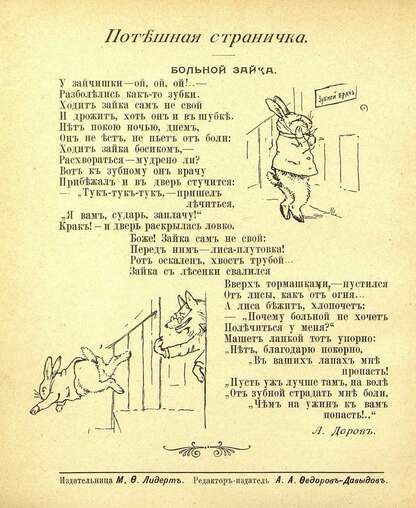 Потѣшная страничка.
БОЛЬНОЙ ЗАЙКА.
У зайчишки—ой, ой, ой!..—
Разболѣлись какъ-то зубки.
Ходитъ зайка самъ не свой
И дрожитъ, хоть онъ и въ шубкѣ.
Нѣтъ покою ночью, днемъ,
Онъ не ѣстъ, не пьетъ отъ боли:
Ходитъ зайка босикомъ,—
Расхвораться—мудрено ли?
Вотъ къ зубному онъ врачу
Прибѣжалъ и въ дверь стучится:
— „Тукъ-тукъ-тукъ,—пришелъ
лѣчиться,
„Я вамъ, сударь, заплачу!“
Кракъ!—и дверь раскрылась ловко.
Зубной врачъ
Боже! Зайка самъ не свой:
Передъ нимъ—лиса-плутовка!
Ротъ оскаленъ, хвостъ трубой...
Зайка съ лѣсенки свалился
Вверхъ тормашками,—пустился
Отъ лисы, какъ отъ огня...
А лиса бѣжитъ, хлопочетъ:
— „Почему больной не хочетъ
Полѣчиться у меня?“
Машетъ лапкой тотъ упорно:
„Нѣтъ, благодарю покорно,
„Въ вашихъ лапахъ мнѣ
пропасть!
„Пусть ужъ лучше тамъ, на волѣ
„Отъ зубной страдать мнѣ боли,
„Чѣмъ на ужинъ къ вамъ
попасть!..“
А. Доровъ.
Издательница М. Ѳ. Лидертъ. Редакторъ-издатель А. А. Ѳедоровъ-Давыдовъ.